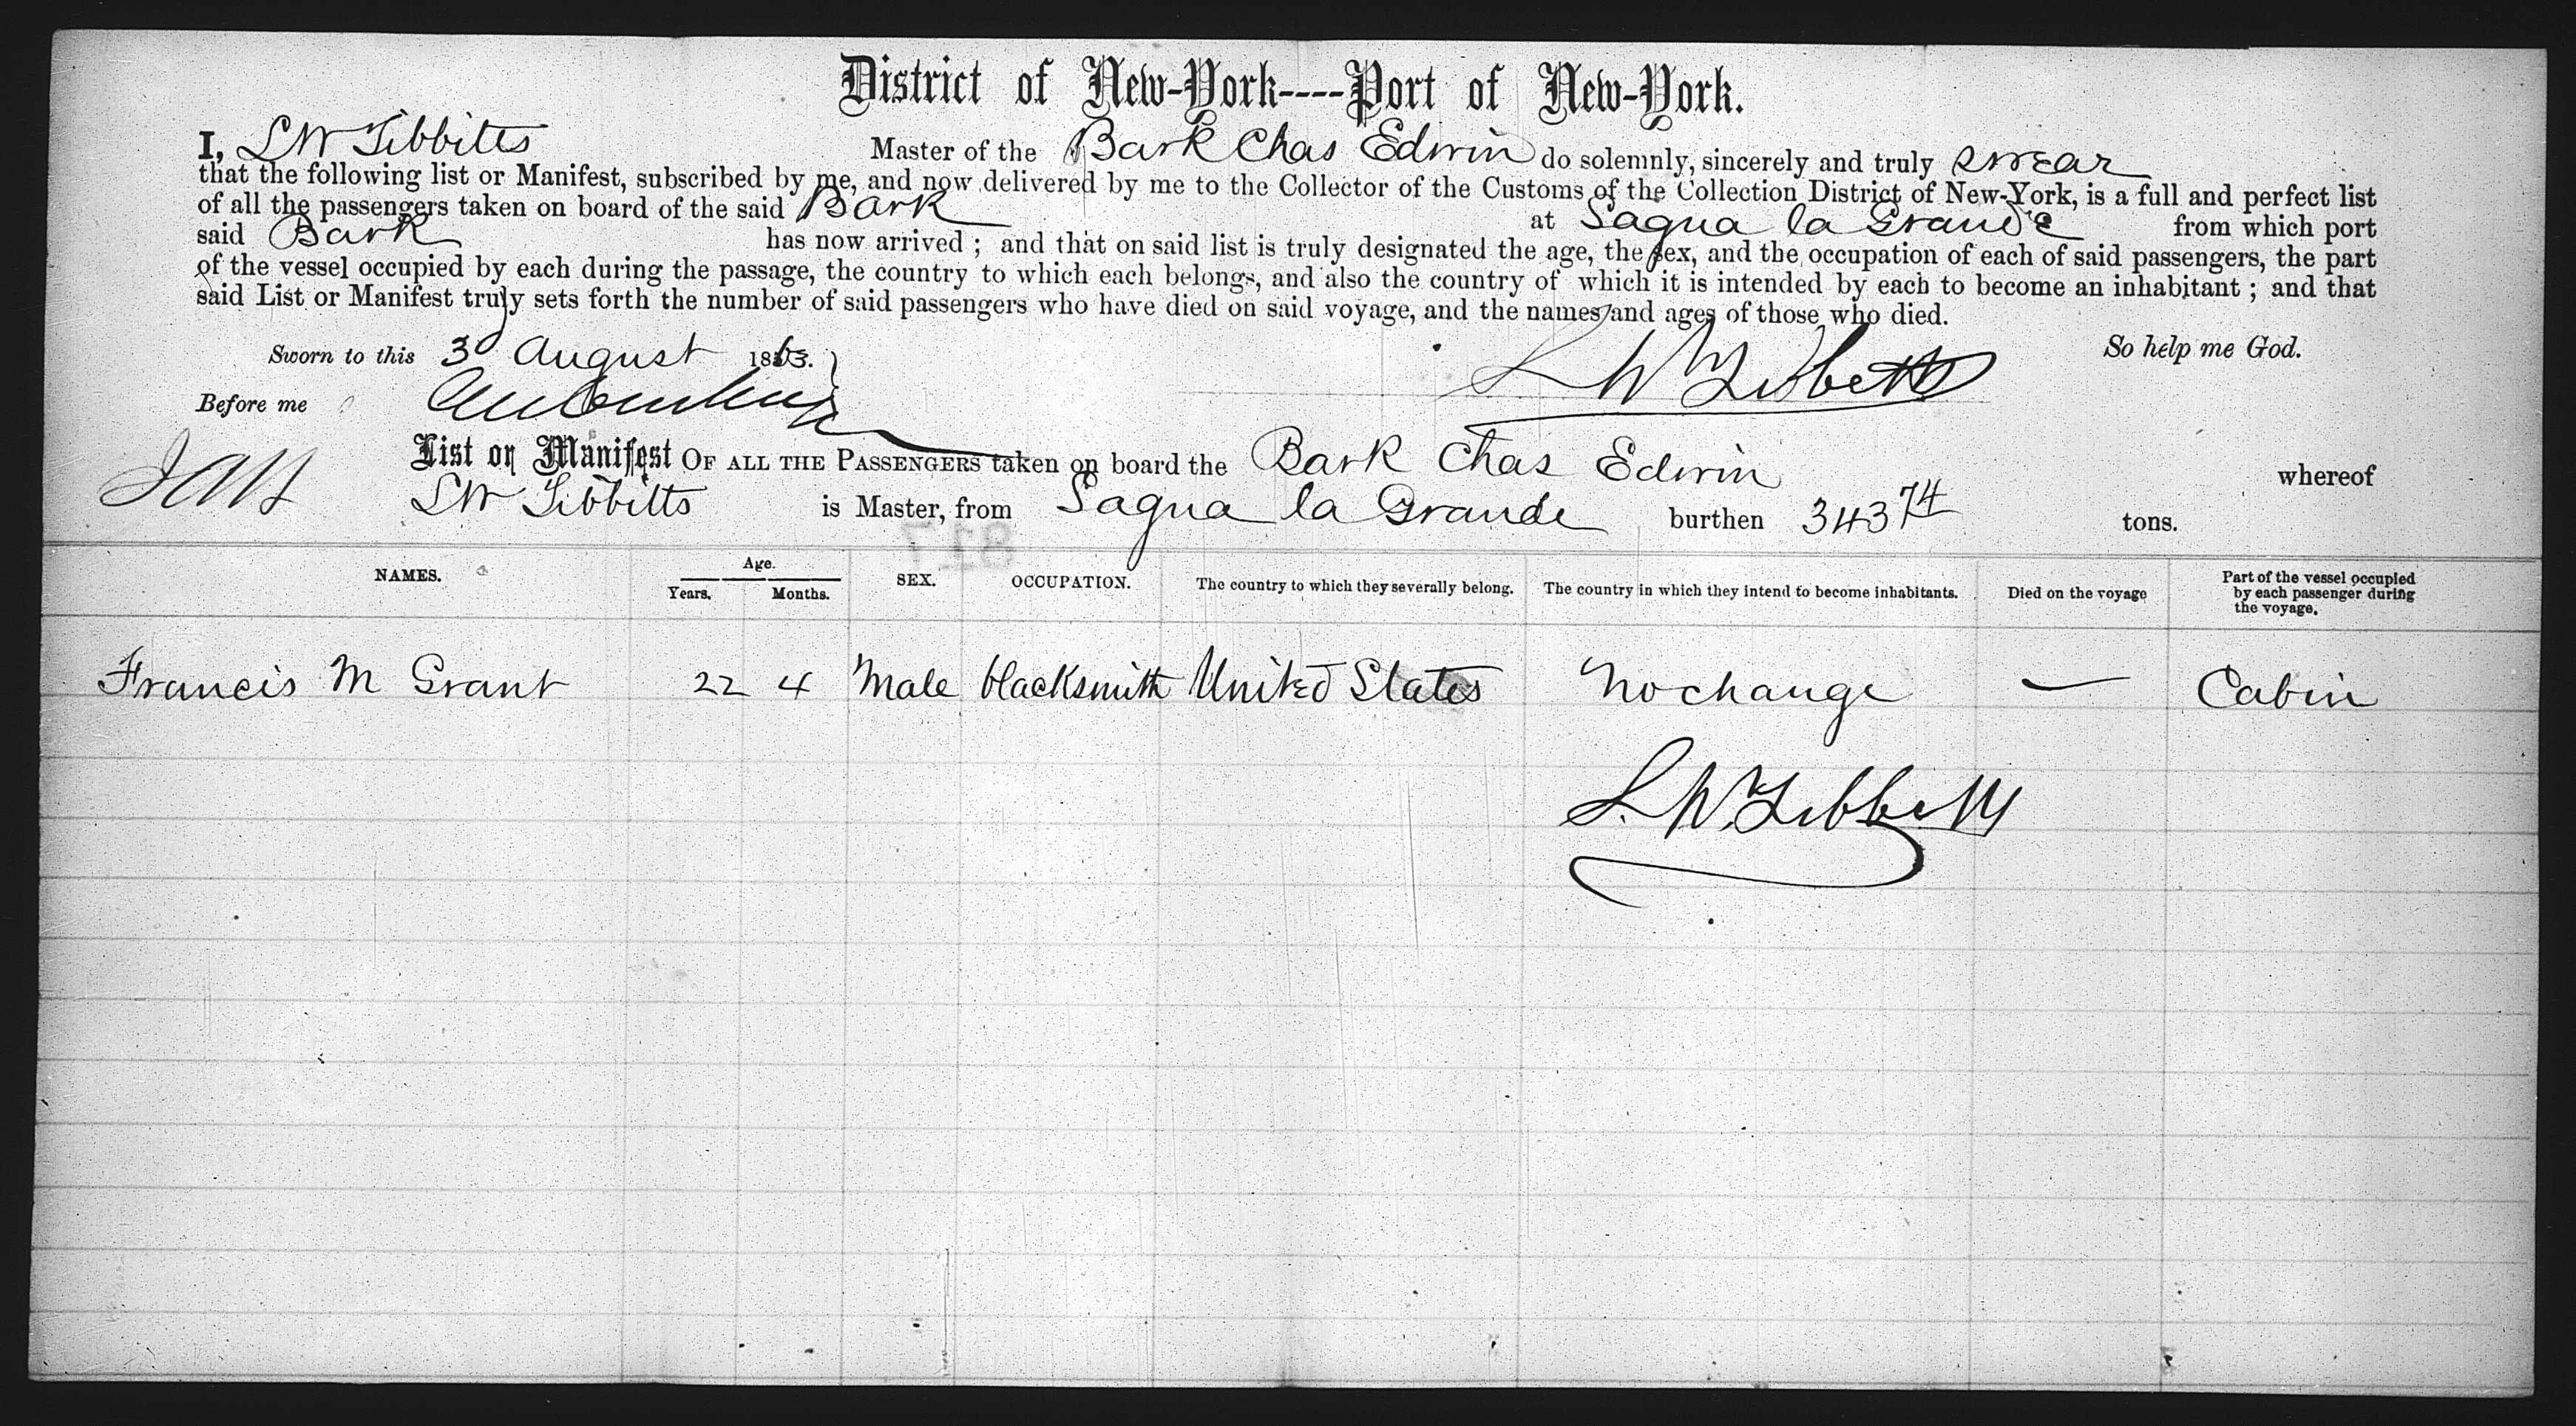 District of New-York----Port of New-York.
I, L W Tibbitts Master of the Bark Chas Edwin do solemnly, sincerely and truly swear
that the following list or Manifest, subscribed by me, and now delivered by me to the Collector of the Customs of the Collection District of New-York, is a full and perfect list
of all the passengers taken on board of the said Bark at Sagua la Grande from which port
said Bark has now arrived ; and that on said list is truly designated the age, the sex, and the occupation of each of said passengers, the part
of the vessel occupied by each during the passage, the country to which each belongs, and also the country of which it is intended by each to become an inhabitant ; and that
said List or Manifest truly sets forth the number of said passengers who have died on said voyage, and the names and ages of those who died.
Sworn to this 3d August 1863. So help me God.
L W Tibbetts
Before me
List or Manifest OF ALL THE PASSENGERS taken on board the Bark Chas Edwin whereof
L W Tibbitts is Master, from Sagua la Grande burthen 343 74 tons.
817
NAMES. Age. Years. Months. SEX. OCCUPATION. The country to which they severally belong. The country in which they intend to become inhabitants. Died on the voyage Part of the vessel occupied by each passenger during the voyage.
Francis M Grant 22 4 Male blacksmith United States No change — Cabin
L. W. Tibbetts